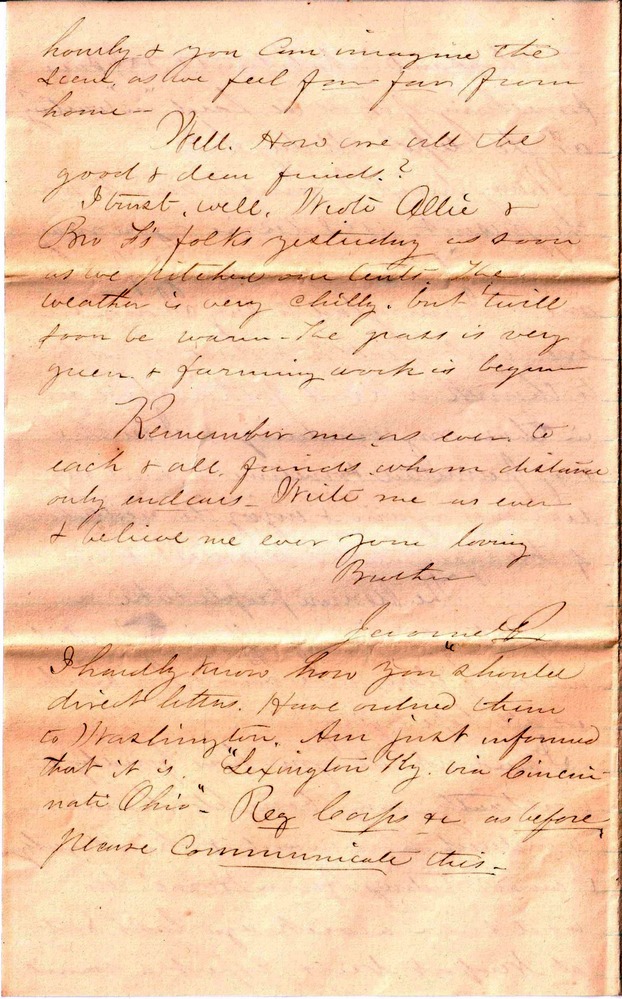 hourly & you can imagine the
scene, as we feel far far from
home—
Well. How are all the
good & dear friends?
I trust, well. Wrote Allie &
Bro F's folks yesterday as soon
as we pitched our tents. The
weather is very chilly. but twill
soon be warm - The grass is very
green & farming work is begun
Remember me as ever to
each & all friends whom distance
only endears - Write me as ever
& believe me ever your loving
Brother
Jerome
I hardly know how you should
direct letters. Have ordered them
to Washington. Am just informed
that it is "Lexington Ky. via Cincin-
nati Ohio" - Reg Corps &c as before
please communicate this -